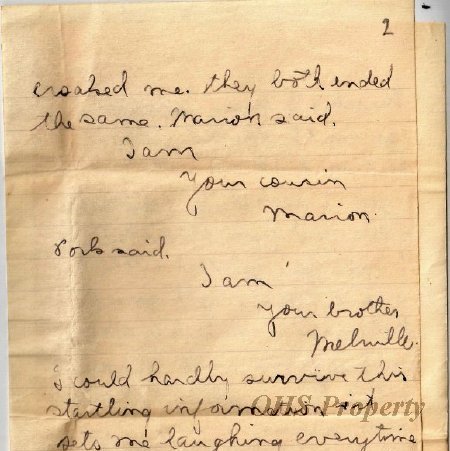 2
croaked me. they both ended
the same. Marion said.
I am
Your cousin
Marion.
said.
I am
Your brother
Melville.
I could hardly survive this
startling information it
OHS Property
sets me laughing everytime